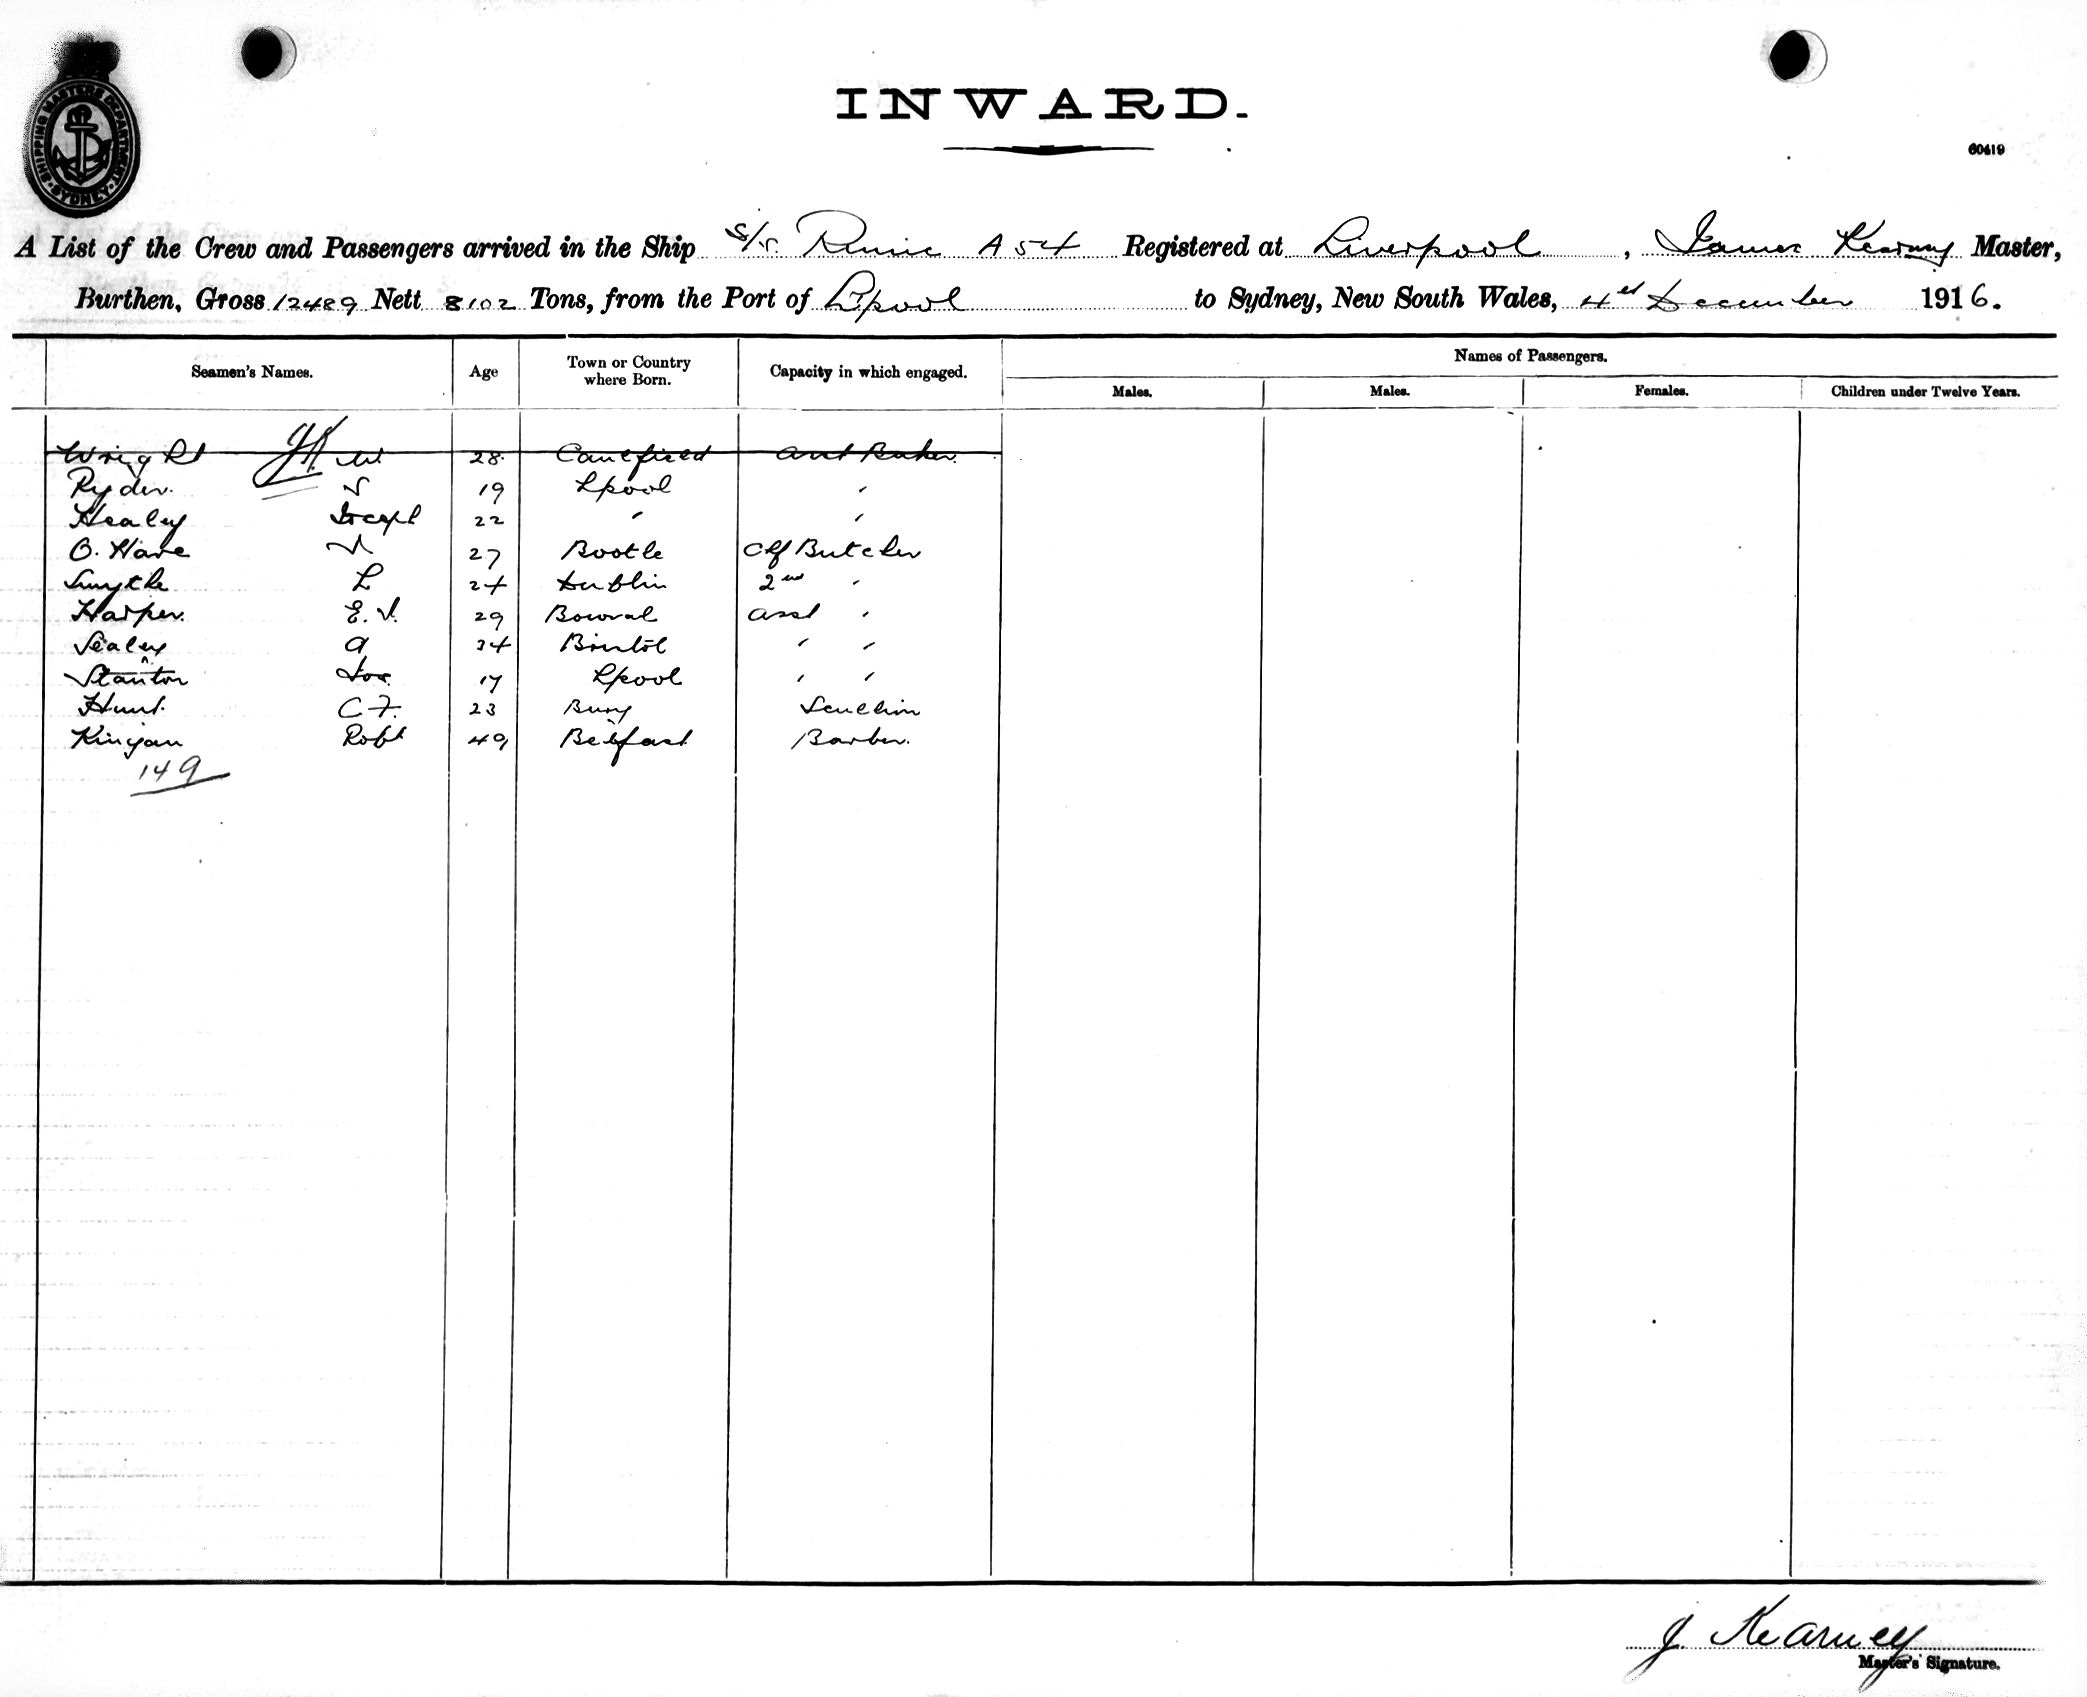 SHIPPING MASTERS DEPARTMENT · SYDNEY ·
INWARD.
60419
A List of the Crew and Passengers arrived in the Ship S/S. Runic A 54 Registered at Liverpool, James Kearney Master,
Burthen, Gross 12489 Nett 8102 Tons, from the Port of Lpool to Sydney, New South Wales, 4th December 1916.
Seamen's Names. Age Town or Country where Born. Capacity in which engaged. Names of Passengers.
Males. Males. Females. Children under Twelve Years.
Wright JK W. 28 Caulfield Asst Baker
Ryder. 19 Lpool "
Healey Joseph 22 " "
O. Hare 27 Bootle Chf Butcher
Smythe L 24 Dublin 2nd "
Harper. E. J. 29 Bowral Asst "
Sealey A 34 Bristol " "
Stanton Jos. 17 Lpool " "
Hunt. C F. 23 Bury Scullion
Kinyan Robt 49 Belfast Barber.
149
J. Kearney
Master's Signature.